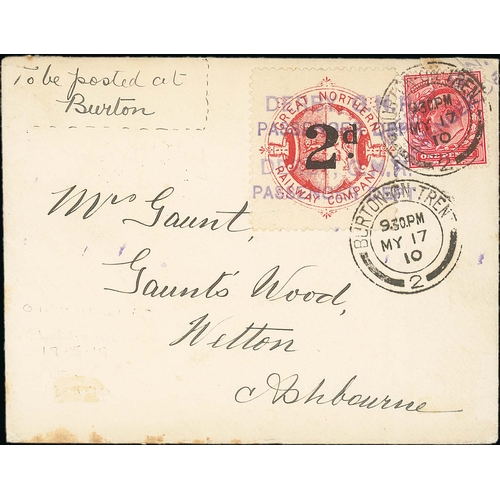 To be posted at
Burton
GREAT NORTHERN
2d.
RAILWAY COMPANY
DERBY
PASSENGER
PASSENGER
ONE PENNY
BURTON-ON-TRENT
9.30PM
MY 17
10
2
BURTON-ON-TRENT
9.30.PM
MY 17
10
2
Mrs Gaunt,
Gaunt's Wood,
Wetton
Ashbourne